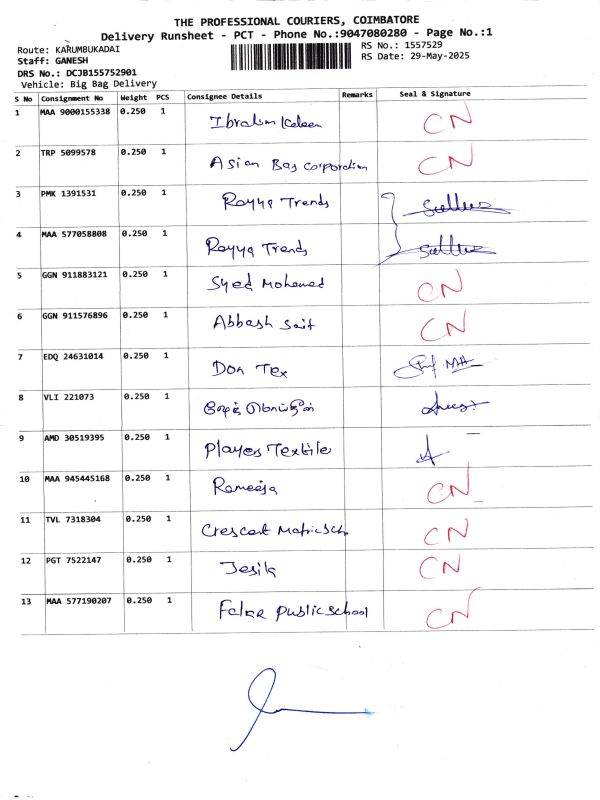 THE PROFESSIONAL COURIERS, COIMBATORE
Delivery Runsheet - PCT - Phone No.:9047080280 - Page No.:1
Route: KARUMBUKADAI
RS No.: 1557529
Staff: GANESH
RS Date: 29-May-2025
DRS No.: DCJB155752901
Vehicle: Big Bag Delivery
S No Consignment No Weight PCS Consignee Details Remarks Seal & Signature
1 MAA 9000155338 0.250 1 Ibrahim Kaleen CN
2 TRP 5099578 0.250 1 Asian Bag Corporation CN
3 PMK 1391531 0.250 1 Rayya Trends
4 MAA 577058808 0.250 1 Rayya Trends
5 GGN 911883121 0.250 1 Syed Mohamed CN
6 GGN 911576896 0.250 1 Abbash Sait CN
7 EDQ 24631014 0.250 1 Don Tex
8 VLI 221073 0.250 1
9 AMD 30519395 0.250 1 Players Textile
10 MAA 945445168 0.250 1 Rameeja CN
11 TVL 7318304 0.250 1 Crescent Matric Sch CN
12 PGT 7522147 0.250 1 Jesik CN
13 MAA 577190207 0.250 1 Public School CN